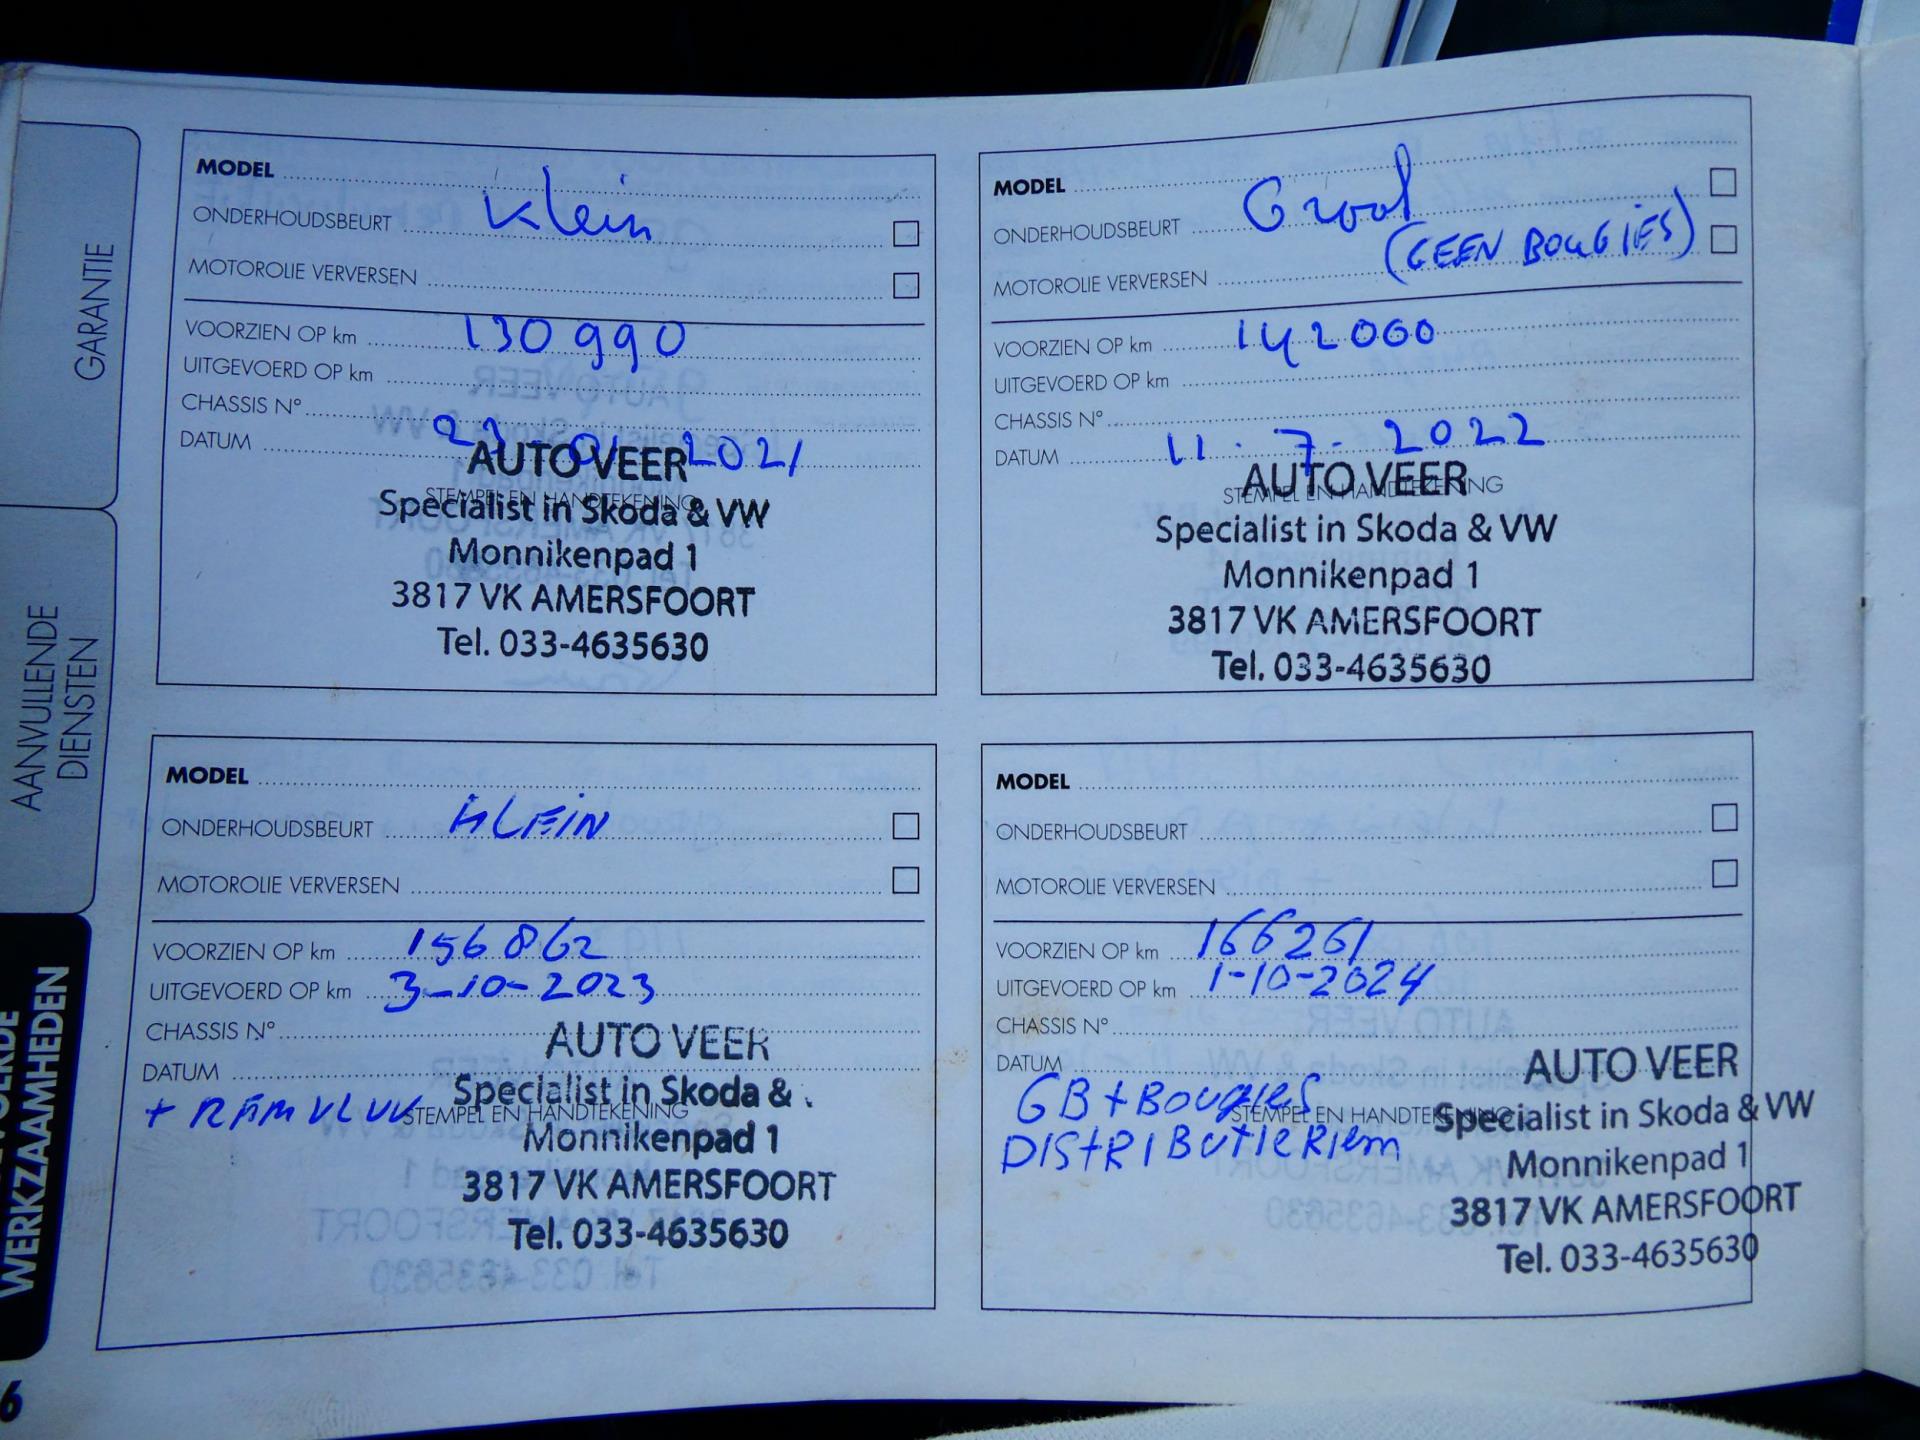 GARANTIE
AANVULLENDE
DIENSTEN
WERKZAAMHEDEN
6
MODEL
Klein
ONDERHOUDSBEURT
MOTOROLIE VERVERSEN
VOORZIEN OP km 130990
UITGEVOERD OP km
CHASSIS N°
DATUM 2021
AUTO VEER
STEMPEL EN HANDTEKENING
Specialist in Skoda & VW
Monnikenpad 1
3817 VK AMERSFOORT
Tel. 033-4635630
MODEL
ONDERHOUDSBEURT Groot
(GEEN BOUGIES)
MOTOROLIE VERVERSEN
VOORZIEN OP km 142000
UITGEVOERD OP km
CHASSIS N°
DATUM 11-7-2022
AUTO VEER
STEMPEL EN HANDTEKENING
Specialist in Skoda & VW
Monnikenpad 1
3817 VK AMERSFOORT
Tel. 033-4635630
MODEL
ONDERHOUDSBEURT KLEIN
MOTOROLIE VERVERSEN
VOORZIEN OP km 156862
UITGEVOERD OP km 3-10-2023
CHASSIS N°
DATUM
AUTO VEER
Specialist in Skoda &
+
STEMPEL EN HANDTEKENING
Monnikenpad 1
3817 VK AMERSFOORT
Tel. 033-4635630
MODEL
ONDERHOUDSBEURT
MOTOROLIE VERVERSEN
VOORZIEN OP km 166261
UITGEVOERD OP km 1-10-2024
CHASSIS N°
DATUM
GB + BOUGIES
DISTRIBUTIERIEM
STEMPEL EN HANDTEKENING
AUTO VEER
Specialist in Skoda & VW
Monnikenpad 1
3817 VK AMERSFOORT
Tel. 033-4635630